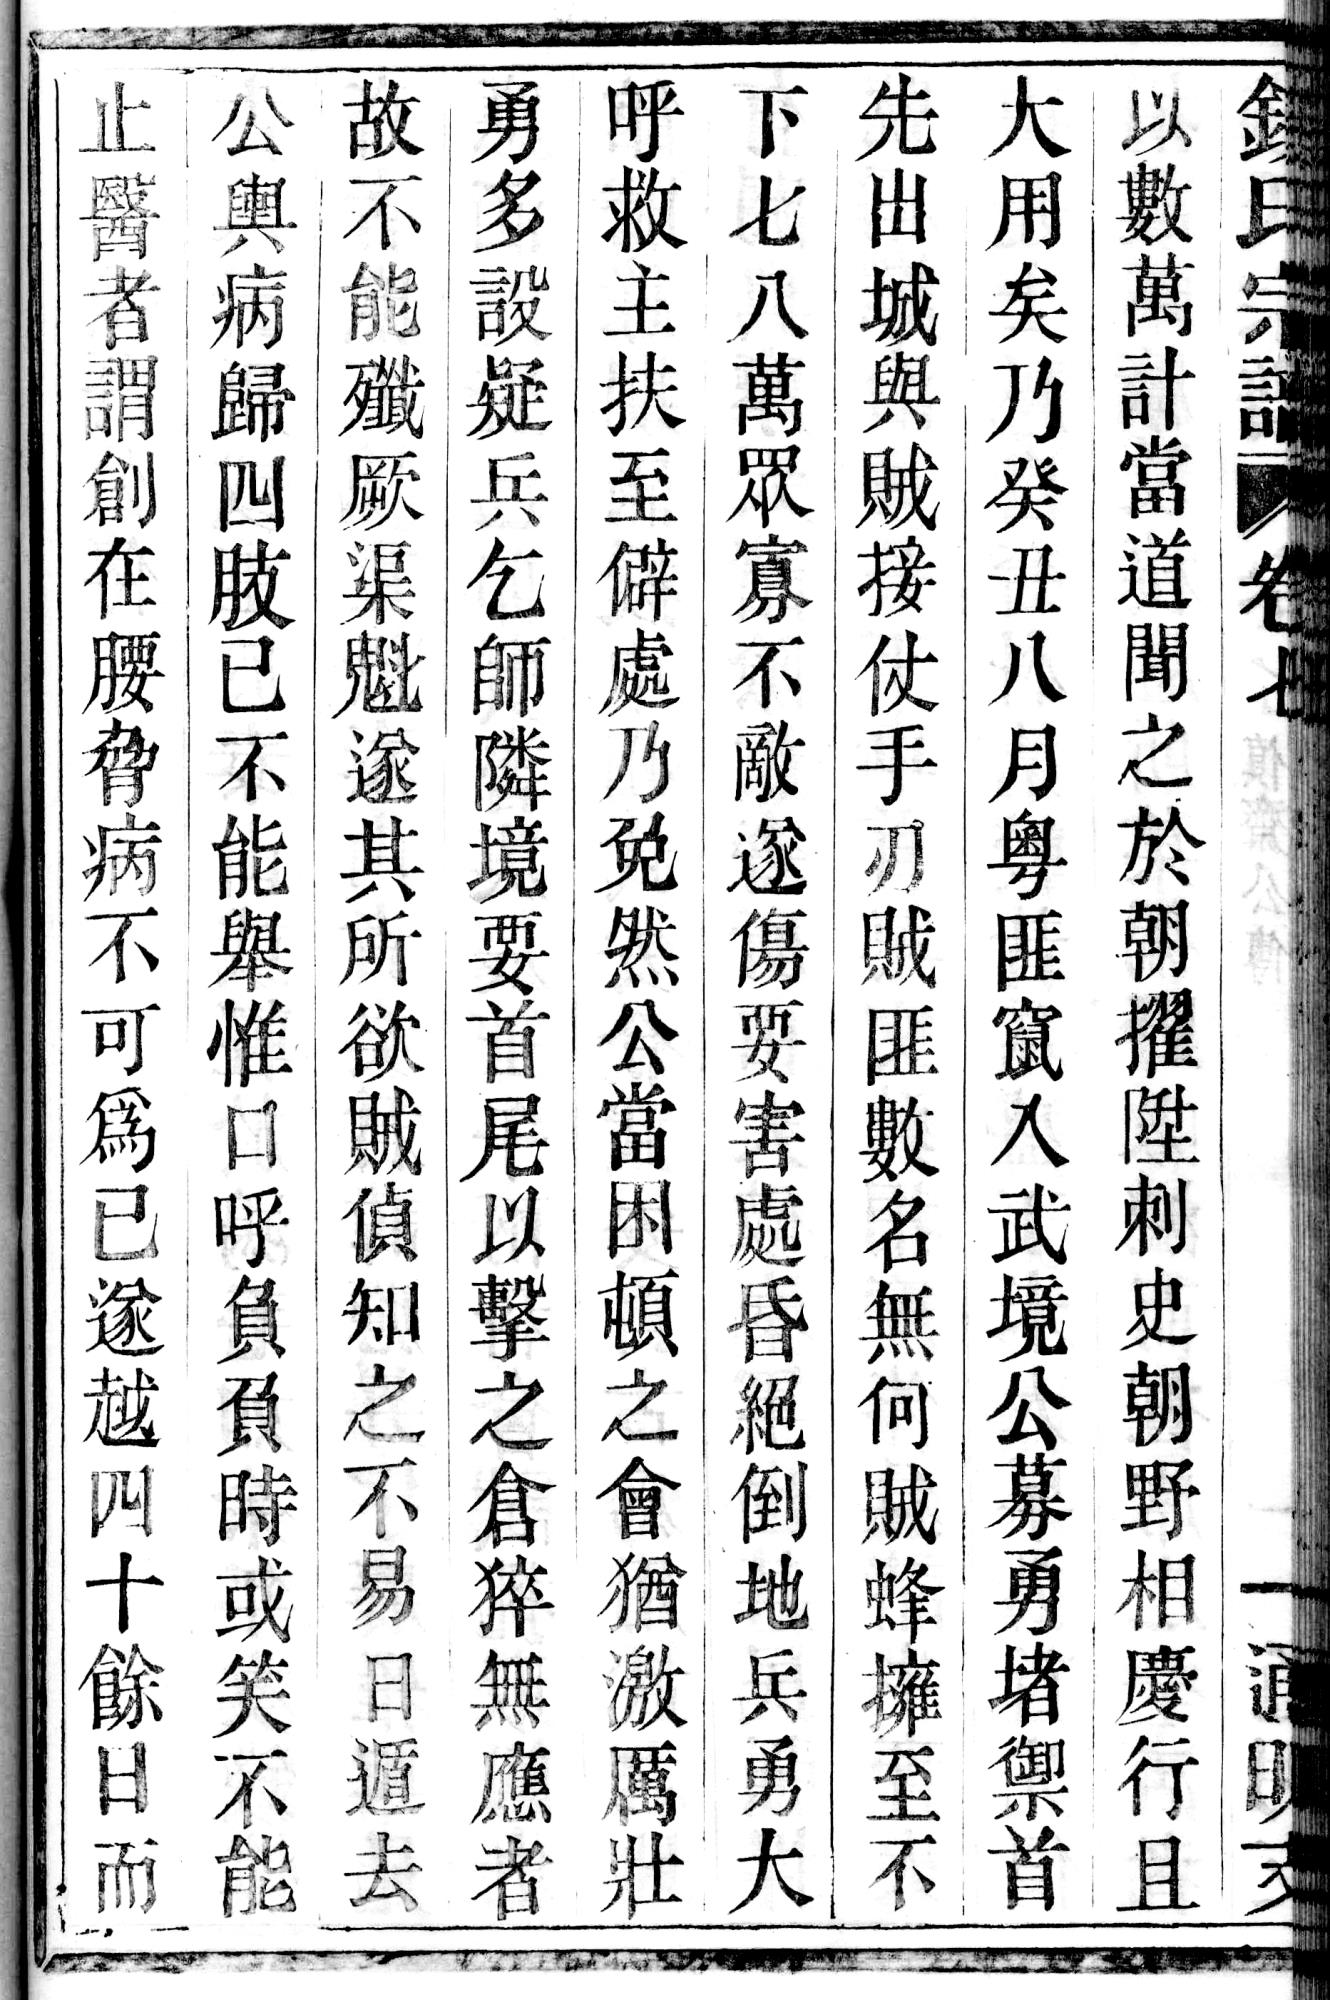 氏宗譜 卷七 一 通明支
以數萬計當道聞之於朝擢陞刺史朝野相慶行且
大用矣乃癸丑八月粵匪竄入武境公募勇堵禦首
先出城與賊接仗手刃賊匪數名無何賊蜂擁至不
下七八萬眾寡不敵遂傷要害處昏絕倒地兵勇大
呼救主扶至僻處乃免然公當困頓之會猶激厲壯
勇多設疑兵乞師隣境要首尾以擊之倉猝無應者
故不能殲厥渠魁遂其所欲賊偵知之不易日遁去
公輿病歸四肢已不能舉惟口呼負負時或笑不能
止醫者謂創在腰脅病不可為已遂越四十餘日而